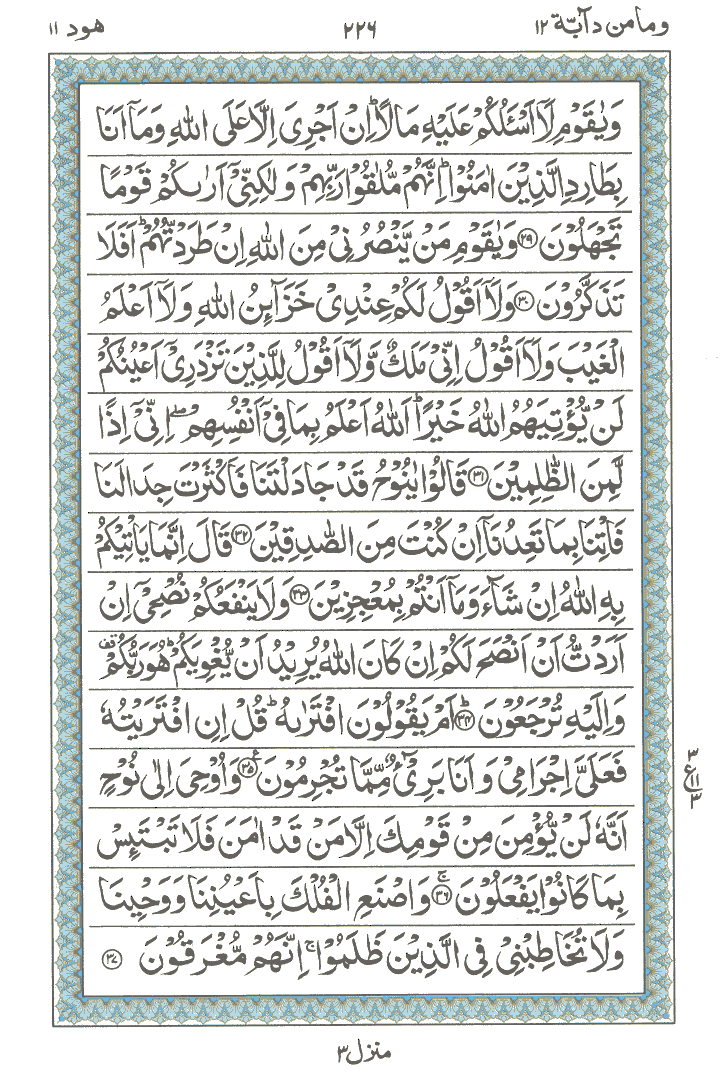 وما من دآبة ١٢ ٢٢٦ هود ١١
وَيٰقَوْمِ لَآ اَسْـَٔلُكُمْ عَلَيْهِ مَالًا ؕ اِنْ اَجْرِىَ اِلَّا عَلَى اللّٰهِ وَمَاۤ اَنَا
بِطَارِدِ الَّذِيْنَ اٰمَنُوْا ؕ اِنَّهُمْ مُّلٰقُوْا رَبِّهِمْ وَلٰكِنِّىْۤ اَرٰىكُمْ قَوْمًا
تَجْهَلُوْنَ ﴿۲۹﴾ وَيٰقَوْمِ مَنْ يَّنْصُرُنِىْ مِنَ اللّٰهِ اِنْ طَرَدْتُّهُمْ ؕ اَفَلَا
تَذَكَّرُوْنَ ﴿۳۰﴾ وَلَاۤ اَقُوْلُ لَكُمْ عِنْدِىْ خَزَآئِنُ اللّٰهِ وَلَاۤ اَعْلَمُ
الْغَيْبَ وَلَاۤ اَقُوْلُ اِنِّىْ مَلَكٌ وَّلَاۤ اَقُوْلُ لِلَّذِيْنَ تَزْدَرِىْۤ اَعْيُنُكُمْ
لَنْ يُّؤْتِيَهُمُ اللّٰهُ خَيْرًا ؕ اَللّٰهُ اَعْلَمُ بِمَا فِىْۤ اَنْفُسِهِمْ ۖۚ اِنِّىْۤ اِذًا
لَّمِنَ الظّٰلِمِيْنَ ﴿۳۱﴾ قَالُوْا يٰنُوْحُ قَدْ جَادَلْتَنَا فَاَكْثَرْتَ جِدَالَنَا
فَاْتِنَا بِمَا تَعِدُنَاۤ اِنْ كُنْتَ مِنَ الصّٰدِقِيْنَ ﴿۳۲﴾ قَالَ اِنَّمَا يَاْتِيْكُمْ
بِهِ اللّٰهُ اِنْ شَآءَ وَمَاۤ اَنْتُمْ بِمُعْجِزِيْنَ ﴿۳۳﴾ وَلَا يَنْفَعُكُمْ نُصْحِىْۤ اِنْ
اَرَدْتُّ اَنْ اَنْصَحَ لَكُمْ اِنْ كَانَ اللّٰهُ يُرِيْدُ اَنْ يُّغْوِيَكُمْ ؕ هُوَ رَبُّكُمْ قف
وَاِلَيْهِ تُرْجَعُوْنَ ﴿۳۴﴾ ؕ اَمْ يَقُوْلُوْنَ افْتَرٰىهُ ؕ قُلْ اِنِ افْتَرَيْتُهٗ
فَعَلَىَّ اِجْرَامِىْ وَاَنَا بَرِىْٓءٌ مِّمَّا تُجْرِمُوْنَ ﴿۳۵﴾ ع وَاُوْحِىَ اِلٰى نُوْحٍ
اَنَّهٗ لَنْ يُّؤْمِنَ مِنْ قَوْمِكَ اِلَّا مَنْ قَدْ اٰمَنَ فَلَا تَبْتَئِسْ
بِمَا كَانُوْا يَفْعَلُوْنَ ﴿۳۶﴾ ۚ وَاصْنَعِ الْفُلْكَ بِاَعْيُنِنَا وَوَحْيِنَا
وَلَا تُخَاطِبْنِىْ فِى الَّذِيْنَ ظَلَمُوْا ۚ اِنَّهُمْ مُّغْرَقُوْنَ ﴿۳۷﴾
٣
ع ١١
٣
منزل ٣